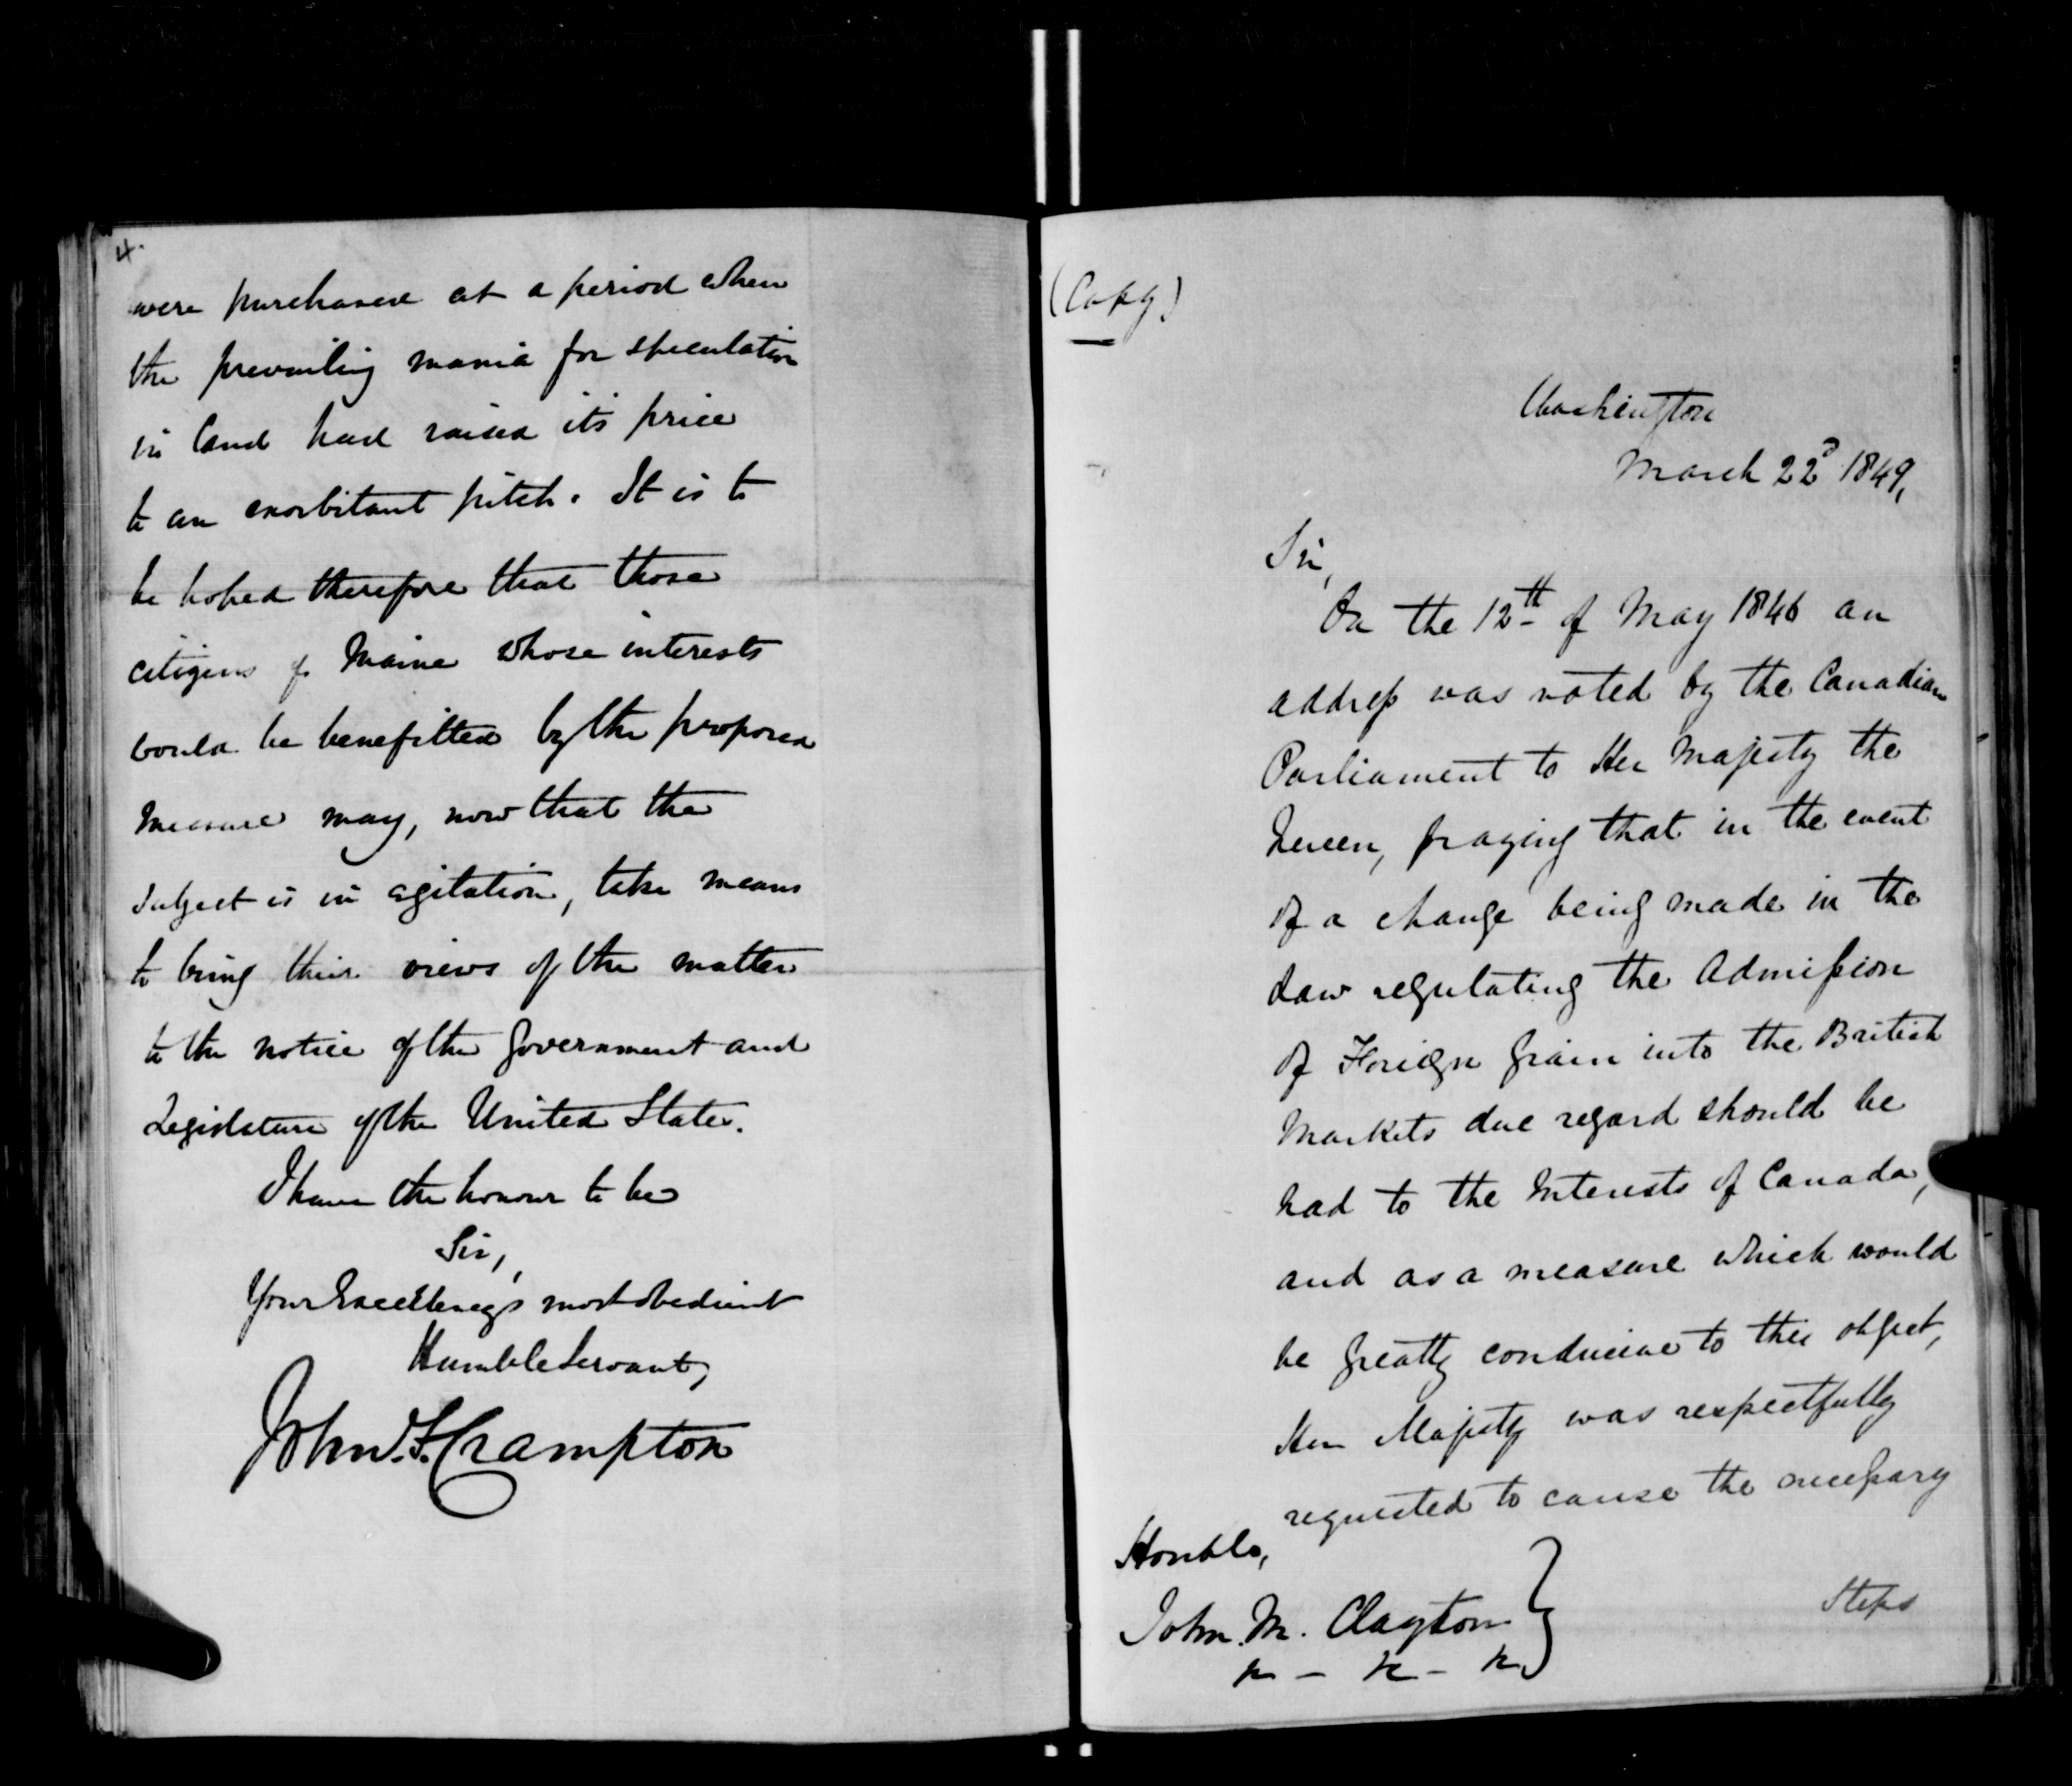 4.
were purchased at a period when
the prevailing mania for speculation
in land had raised its price
to an exorbitant pitch. It is to
be hoped therefore that those
citizens of Maine whose interests
would be benefitted by the proposed
measure may, now that the
subject is in agitation, take means
to bring their views of the matter
to the notice of the Government and
Legislature of the United States.
I have the honour to be
Sir,
Your Excellency's most obedient
Humble Servant,
John. F. Crampton
(Copy)
Washington
March 22d 1849,
Sir,
On the 12th of May 1846 an
address was voted by the Canadian
Parliament to Her Majesty the
Queen, praying that in the event
of a change being made in the
Law regulating the Admission
of Foreign Grain into the British
Markets due regard should be
had to the Interests of Canada,
and as a measure which would
be greatly conducive to this object,
Her Majesty was respectfully
requested to cause the necessary
Honble,
John. M. Clayton
Steps